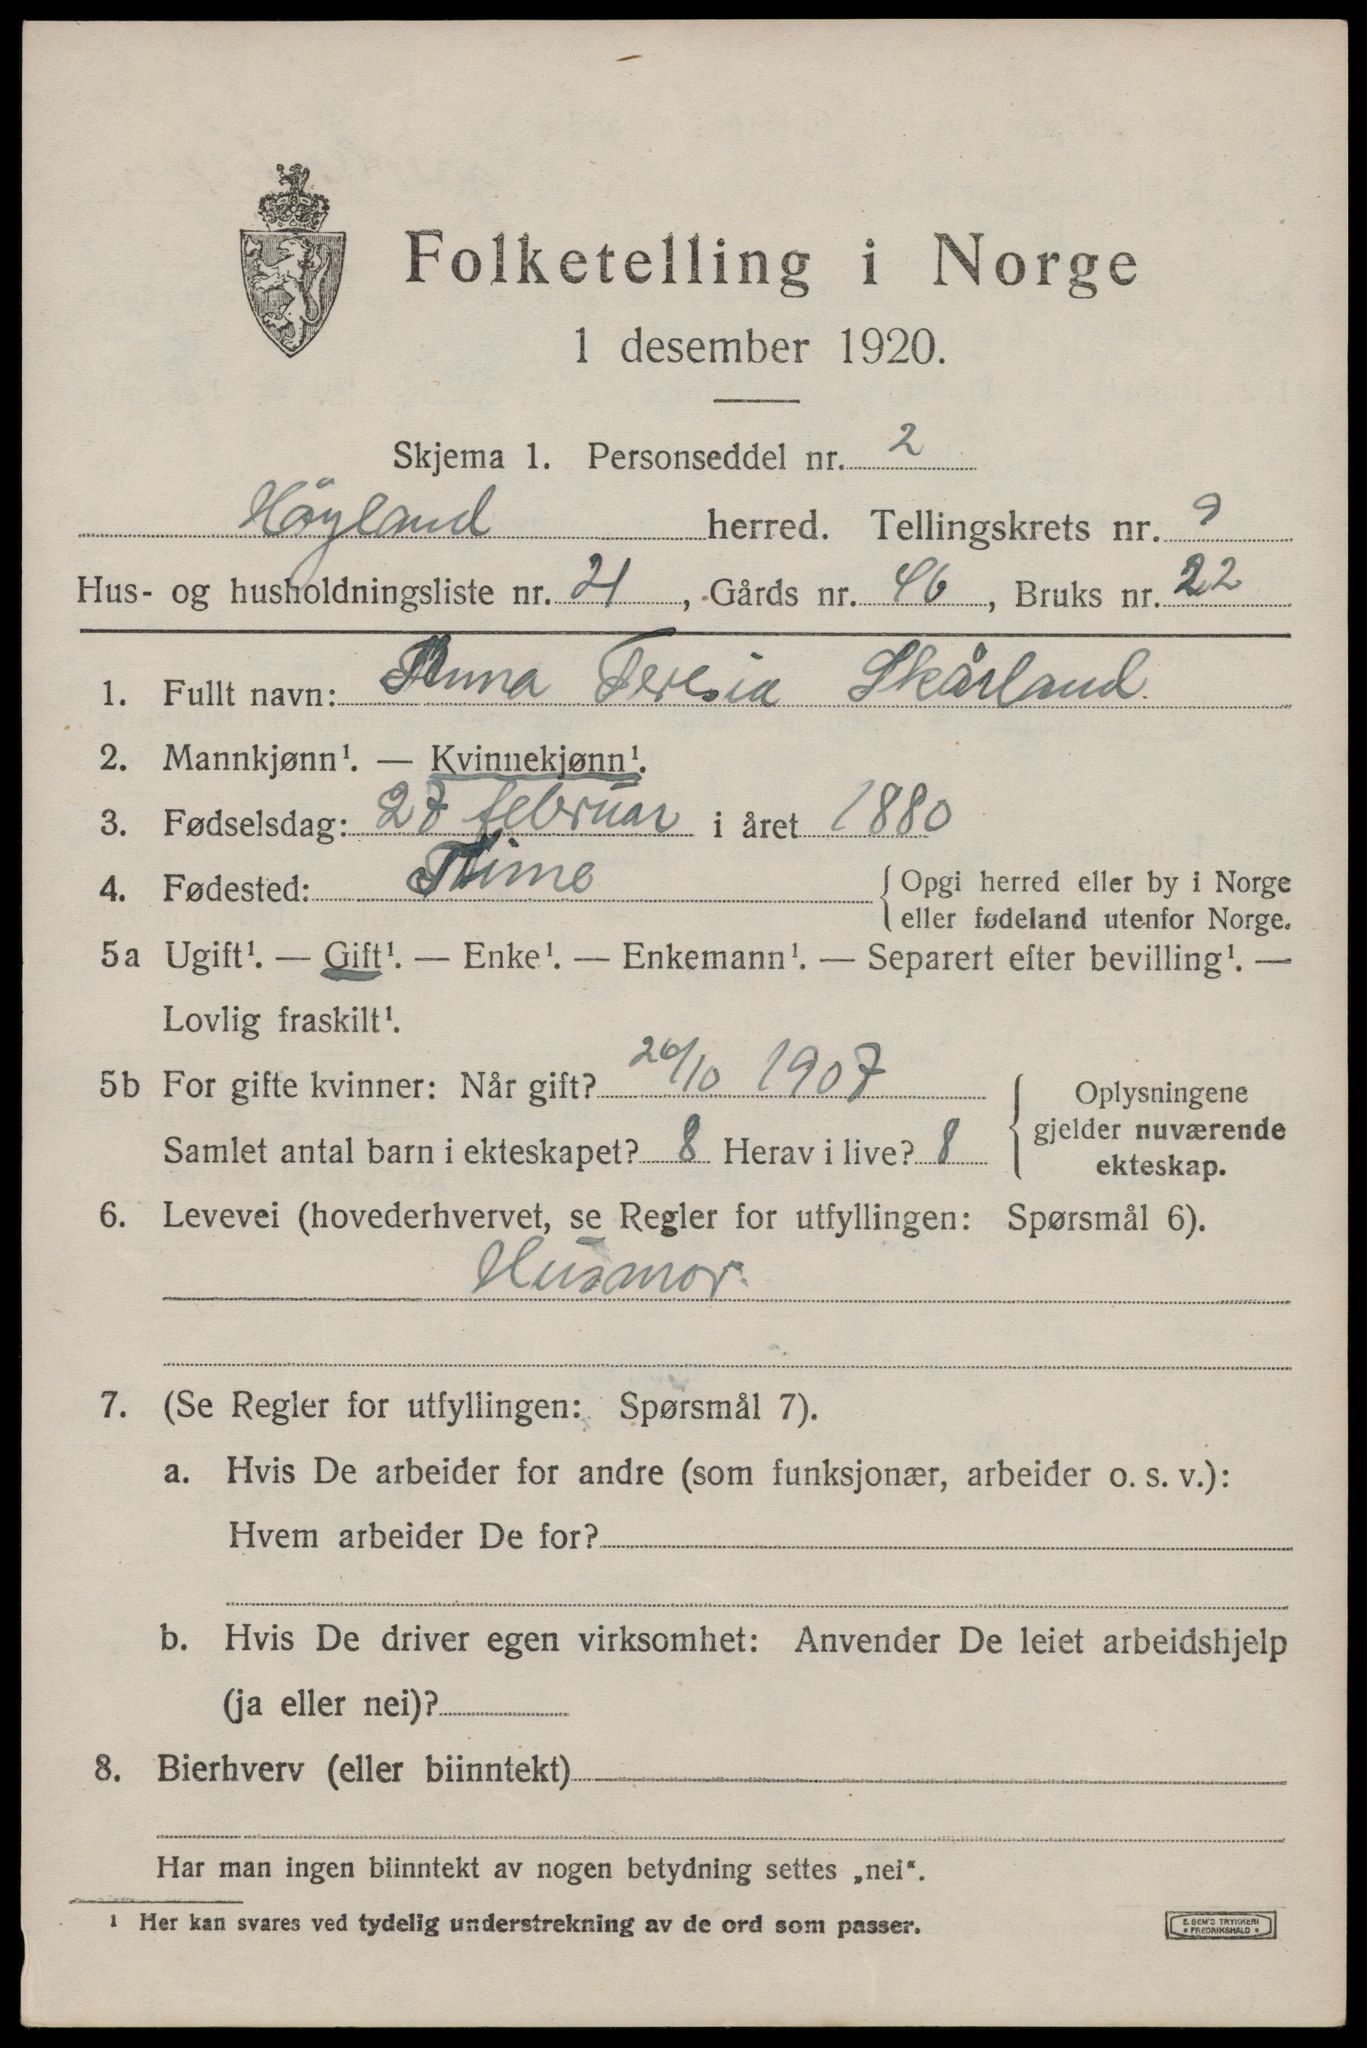 Folketelling i Norge
1 desember 1920.
Skjema 1. Personseddel nr. 2
Höyland herred. Tellingskrets nr. 9
Hus- og husholdningsliste nr. 21, Gårds nr. 46, Bruks nr. 22
1. Fullt navn: Anna Teresia Skårland.
2. Mannkjønn¹. — Kvinnekjønn¹.
3. Fødselsdag: 27 februar i året 1880
4. Fødested: Time { Opgi herred eller by i Norge
eller fødeland utenfor Norge.
5a Ugift¹. — Gift¹. — Enke¹. — Enkemann¹. — Separert efter bevilling¹. —
Lovlig fraskilt¹.
5b For gifte kvinner: Når gift? 26/10 1907
Samlet antal barn i ekteskapet? 8 Herav i live? 8
{ Oplysningene
gjelder nuværende
ekteskap.
6. Levevei (hovederhvervet, se Regler for utfyllingen: Spørsmål 6).
Husmor.
7. (Se Regler for utfyllingen: Spørsmål 7).
a. Hvis De arbeider for andre (som funksjonær, arbeider o. s. v.):
Hvem arbeider De for?
b. Hvis De driver egen virksomhet: Anvender De leiet arbeidshjelp
(ja eller nei)?
8. Bierhverv (eller biinntekt)
Har man ingen biinntekt av nogen betydning settes „nei“.
¹ Her kan svares ved tydelig understrekning av de ord som passer.
E. SEM'S TRYKKERI
• FREDRIKSHALD •